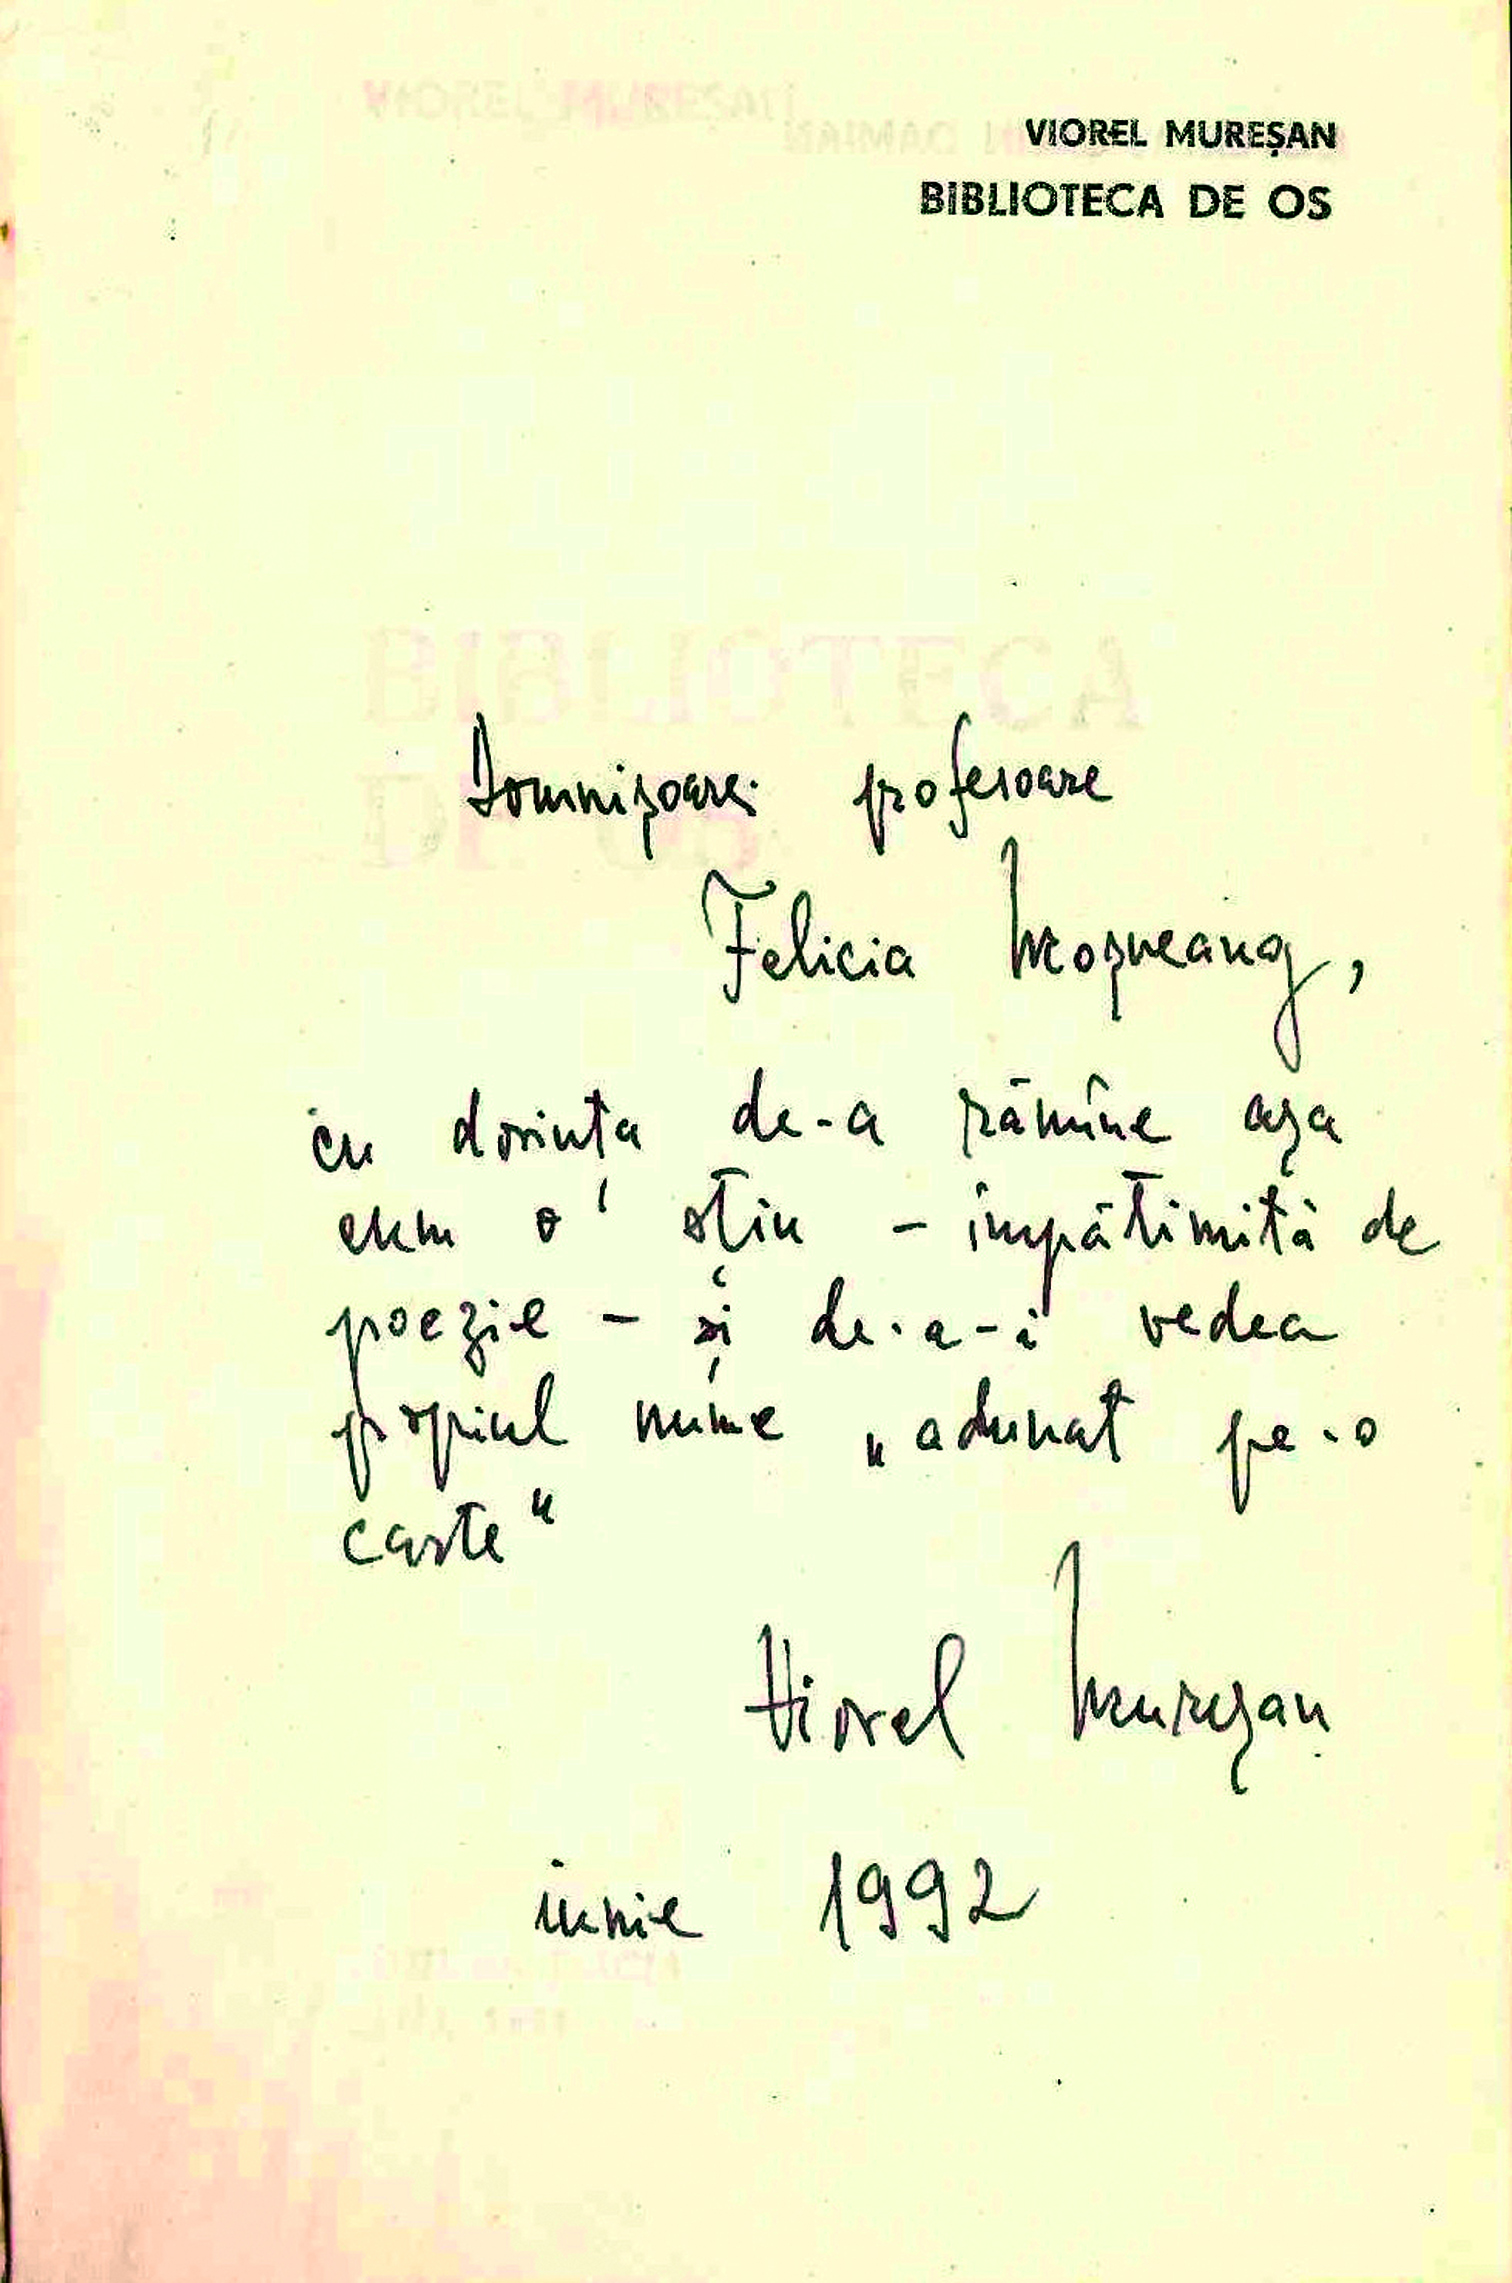 VIOREL MUREȘAN
BIBLIOTECA DE OS
BIBLIOTECA
DE OS
Domnișoarei profesoare
Felicia Moșneang,
cu dorința de-a rămîne așa
cum o știu – împătimită de
poezie – și de-a-i vedea
propiul nume „adunat pe-o
carte“
Viorel Mureșan
iunie 1992